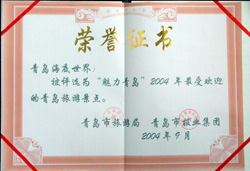 荣誉证书
青岛海底世界:
被评选为"魅力青岛"2004年最受欢迎
的青岛旅游景点。
青岛市旅游局 青岛市报业集团
2004年9月